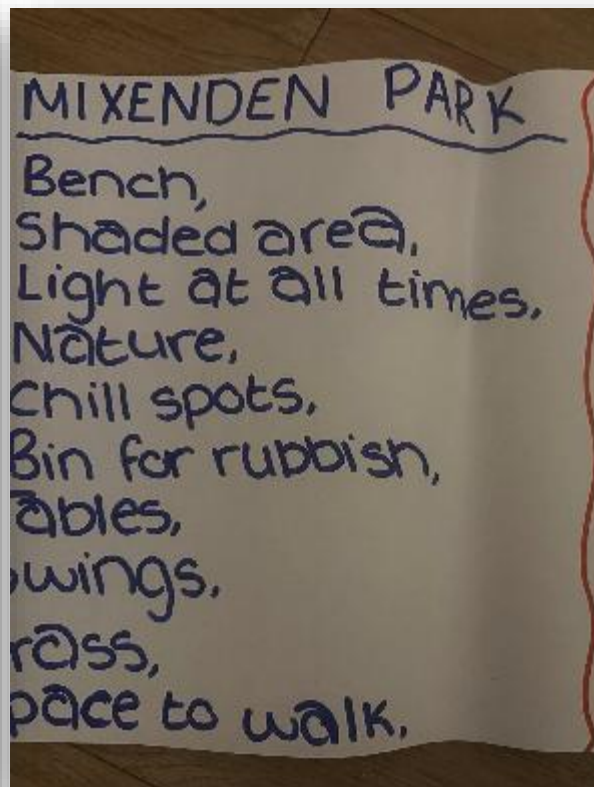 MIXENDEN PARK
Bench,
Shaded area,
Light at all times,
Nature,
Chill spots,
Bin for rubbish,
ables,
wings,
rass,
pace to walk.